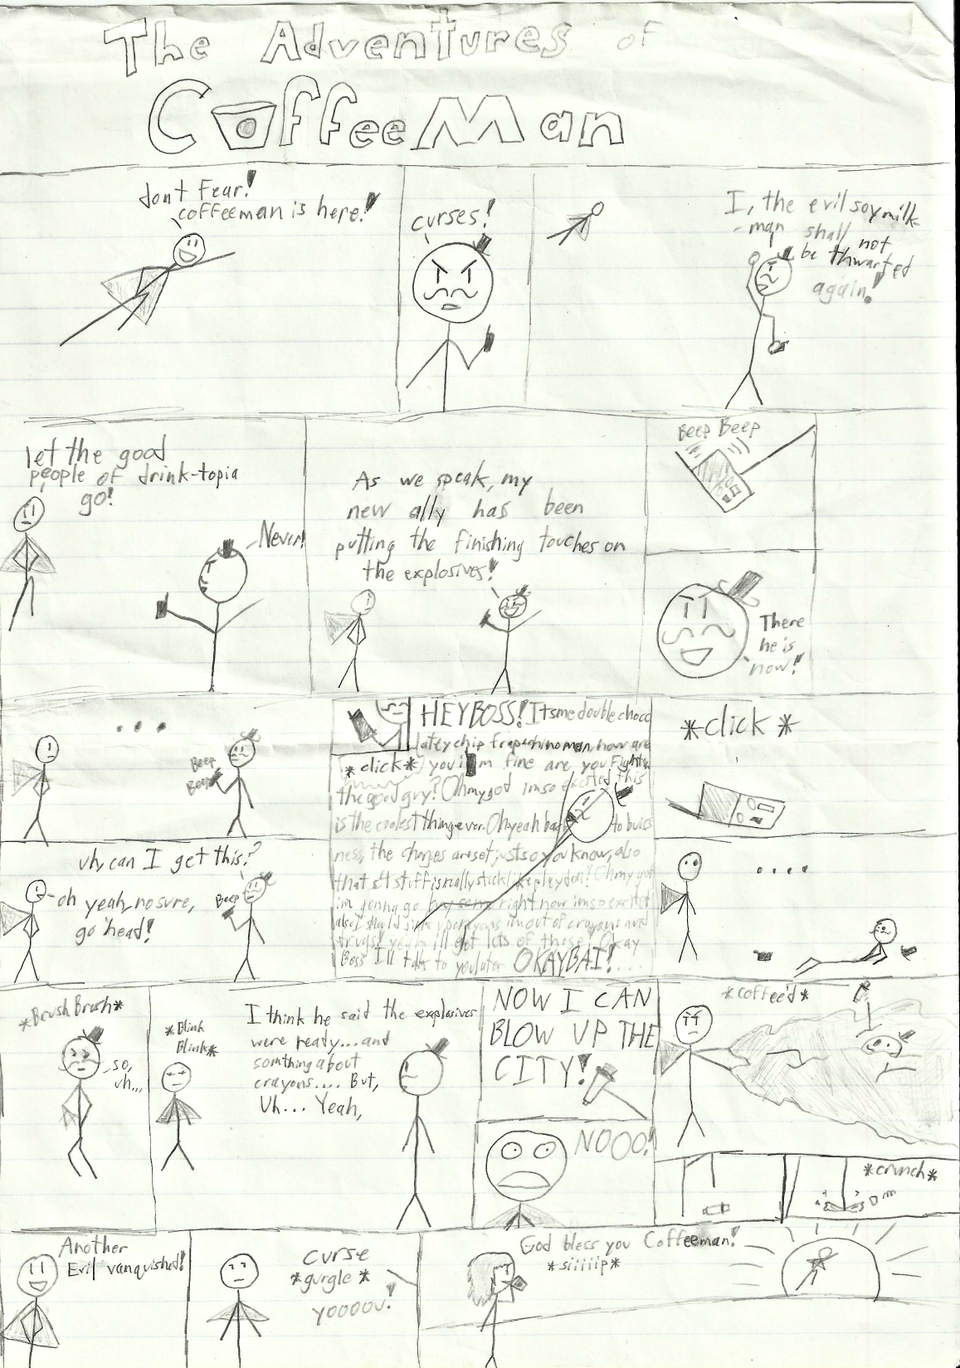 The Adventures of
CoffeeMan
don't fear!
coffeeman is here!
curses!
I, the evil soymilk
-man shall
not
be thwarted
again!
let the good
people of drink-topia
go!
Never!
As we speak, my
new ally has been
putting the finishing touches on
the explosives!
Beep Beep
There
he is
now!
...
Beep
Beep
uh, can I get this?
oh yeah, no sure,
go 'head!
Beep
HEY BOSS! Itsmedoublechoco
lateychip frapechinoman, how are
*click*
you i'm fine are you fighting
the good guy? Ohmygod imso excited this
is the coolest thing ever. Ohyeah back to busi
ness, the charges are set, just so you know, also
that stuff is really sticky like playdoh! Ohmy god
im gonna go right now imso excited
also I should im out of crayons and
yeah ill get lots of those okay
Boss I'll talk to you later OKAYBAI!....
*click*
....
*Brush Brush*
so,
uh...
*Blink
Blink*
I think he said the explosives
were ready... and
somthing about
crayons.... But,
Uh... Yeah,
NOW I CAN
BLOW UP THE
CITY!
NOOO!
*coffee'd*
*crunch*
Another
Evil vanquished!
curse
*gurgle*
yoooou!
God bless you Coffeeman!
*siiiiip*